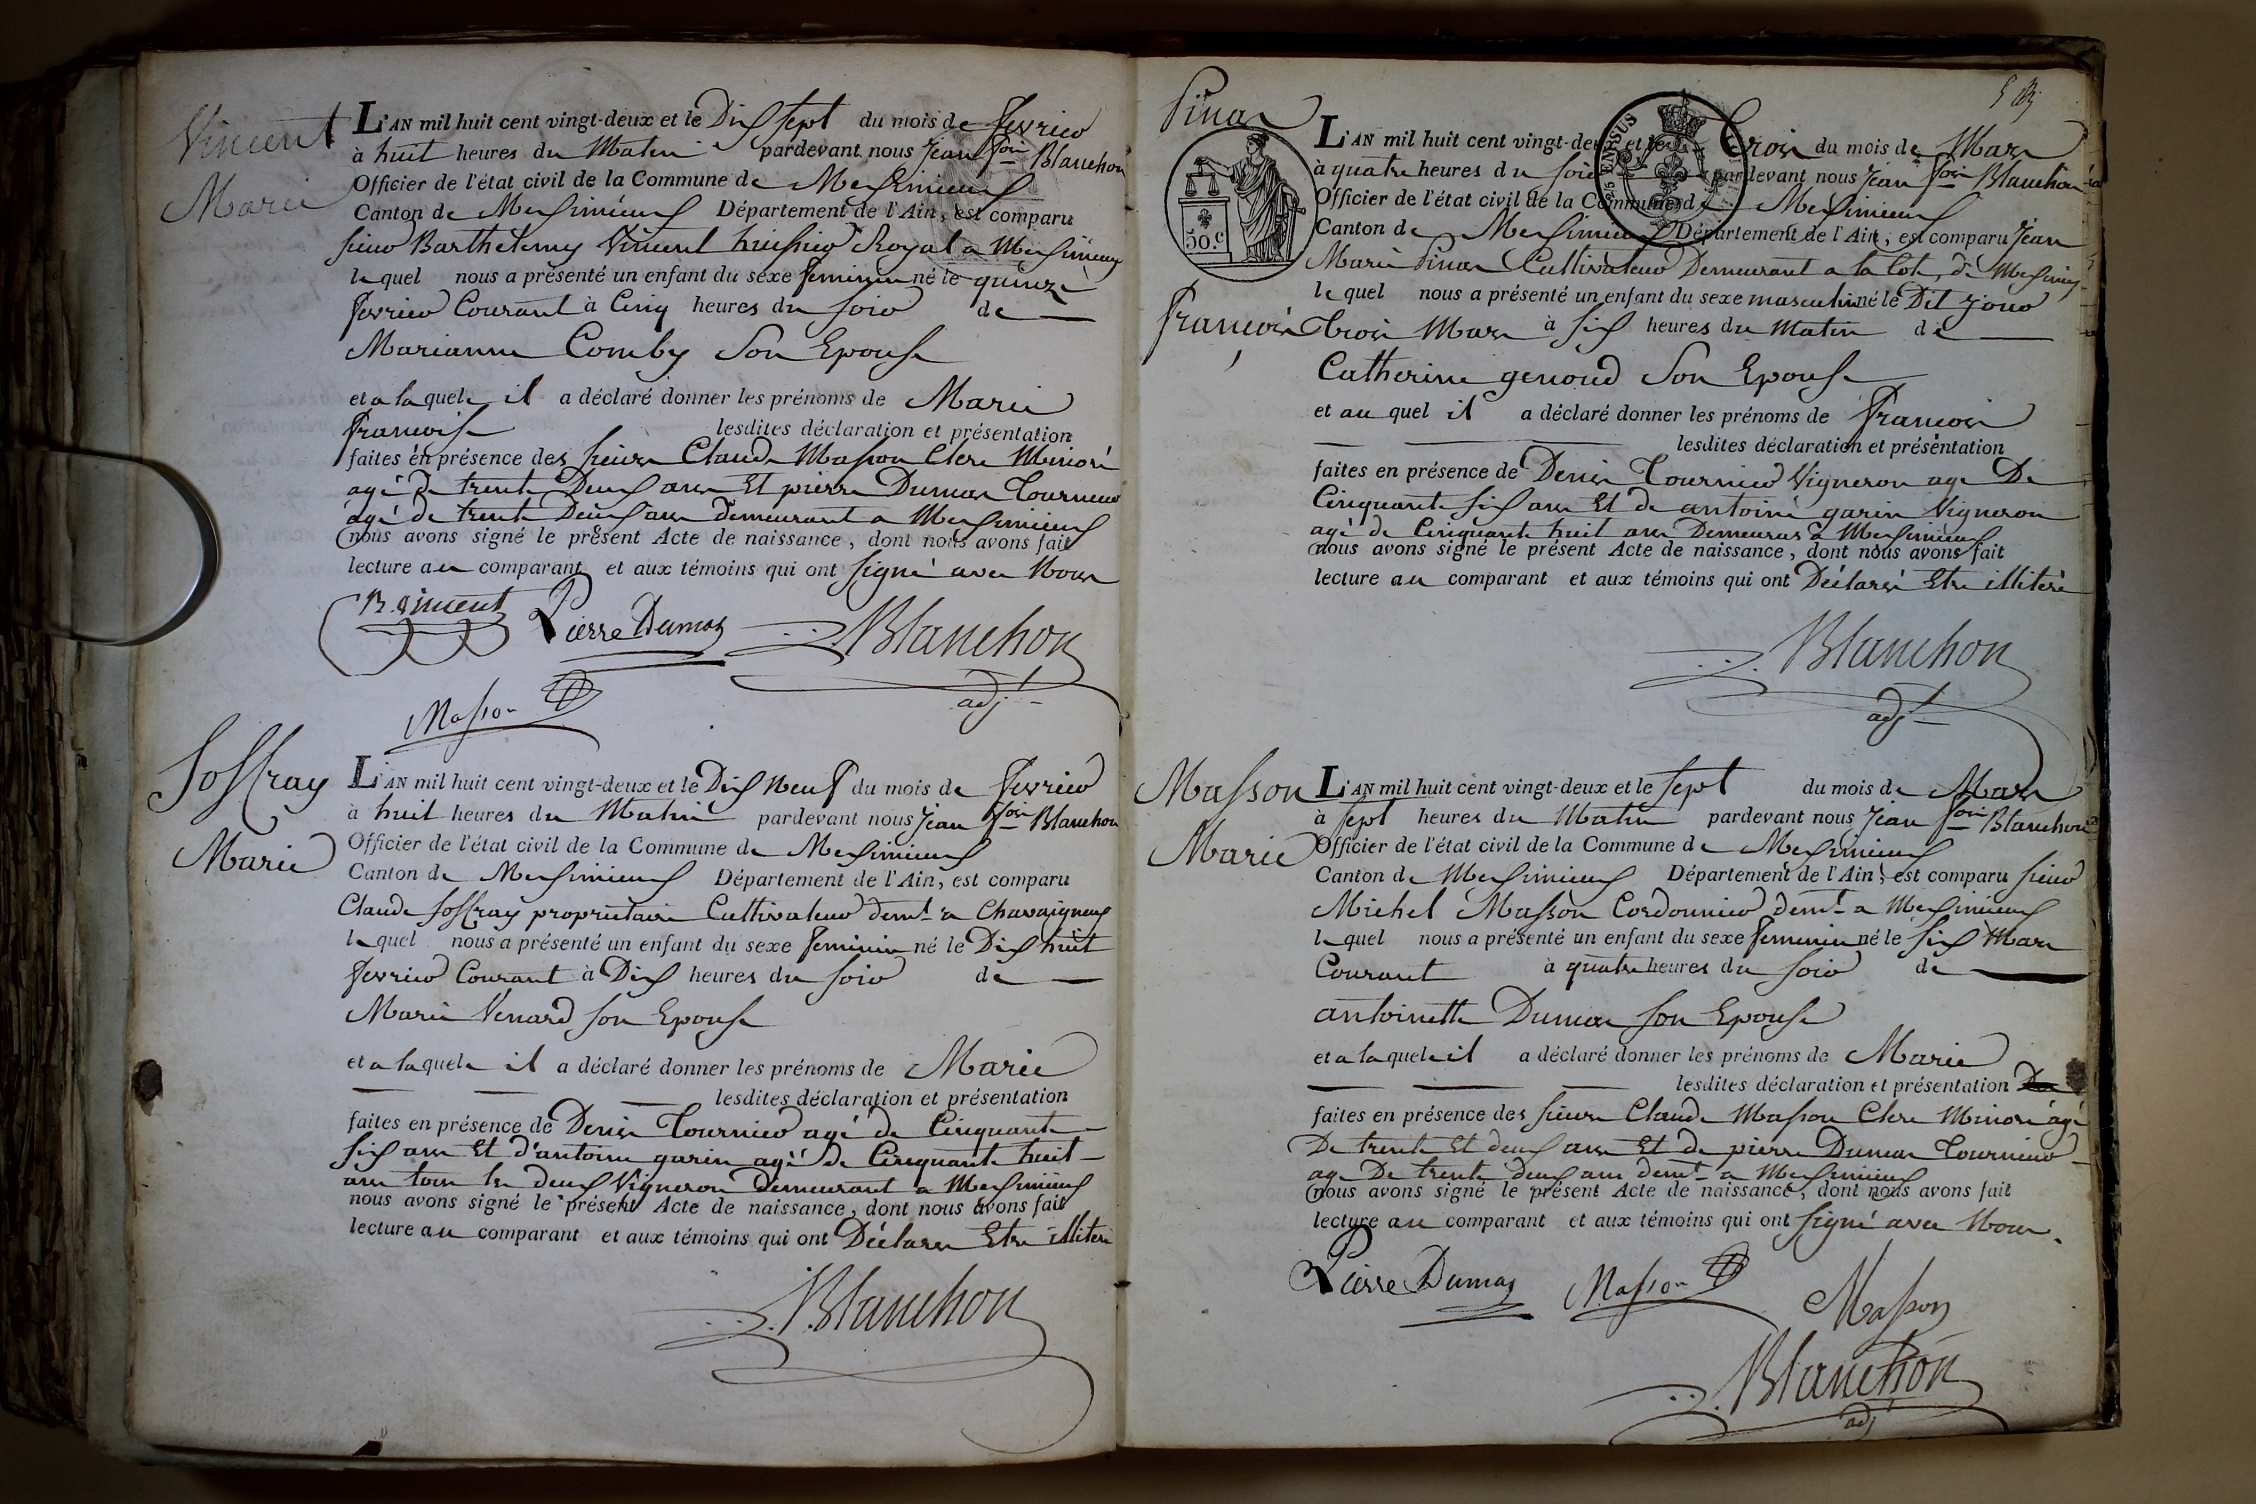 Vincent
Marie
L'AN mil huit cent vingt-deux et le Dix sept du mois de fevrier
à huit heures du Matin pardevant nous Jean fois Blanchon
Officier de l'état civil de la Commune de Meximieux
Canton de Meximieux Département de l'Ain, est comparu
sieur Barthelemy Vincent huissier Royal a Meximieux
lequel nous a présenté un enfant du sexe feminin né le quinze
fevrier Courant à Cinq heures du soir de
Marianne Comby Son Epouse
et a laquele il a déclaré donner les prénoms de Marie
francoise lesdites déclaration et présentation
faites en présence des sieurs Claude Masson Clerc Minoré
agé de trente Deux ans Et pierre Dumas Tourneur
agé de trente Deux ans demeurant a Meximieux
nous avons signé le présent Acte de naissance, dont nous avons fait
lecture au comparant et aux témoins qui ont signé avec Nous
B. Vincent Pierre Dumas Blanchon
adjt
Masson
Joffray
Marie
L'AN mil huit cent vingt-deux et le Dix Neuf du mois de fevrier
à huit heures du Matin pardevant nous Jean fois Blanchon
Officier de l'état civil de la Commune de Meximieux
Canton de Meximieux Département de l'Ain, est comparu
Claude Joffray proprietaire Cultivateur demt a Chavaigneux
lequel nous a présenté un enfant du sexe feminin né le Dix huit
fevrier Courant à Dix heures du soir de
Marie Venard son Epouse
et a laquele il a déclaré donner les prénoms de Marie
lesdites déclaration et présentation
faites en présence de Denis Tournier agé de Cinquante
six ans Et d'antoine garin agé de Cinquante huit
ans tous les deux Vigneron demeurant a Meximieux
nous avons signé le présent Acte de naissance, dont nous avons fait
lecture au comparant et aux témoins qui ont Déclarer Etre illiteré
Blanchon
Pinas
François
50.c
L'AN mil huit cent vingt-deux et le Trois du mois de Mars
à quatre heures du soir pardevant nous Jean fois Blanchon
Officier de l'état civil de la Commune de Meximieux
Canton de Meximieux Département de l'Ain, est comparu Jean
Marie Pinas Cultivateur Demeurant a la Cote, de Meximieux
lequel nous a présenté un enfant du sexe masculin né le Dit jour
trois Mars à six heures du Matin de
Catherine genoud Son Epouse
et au quel il a déclaré donner les prénoms de François
lesdites déclaration et présentation
faites en présence de Denis Tournier Vigneron age De
Cinquante six ans Et de antoine garin Vigneron
agé de Cinquante huit ans Demeurans a Meximieux
nous avons signé le présent Acte de naissance, dont nous avons fait
lecture au comparant et aux témoins qui ont Déclaré Etre illiteré
Blanchon
adjt
Masson
Marie
L'AN mil huit cent vingt-deux et le sept du mois de Mars
à sept heures du Matin pardevant nous Jean fois Blanchon
Officier de l'état civil de la Commune de Meximieux
Canton de Meximieux Département de l'Ain, est comparu sieur
Michel Masson Cordonnier demt a Meximieux
lequel nous a présenté un enfant du sexe feminin né le six Mars
Courant à quatre heures du soir de
antoinette Dumas son Epouse
et a laquele il a déclaré donner les prénoms de Marie
lesdites déclaration et présentation
faites en présence des sieurs Claude Masson Clerc Minoré agé
De trente Et deux ans Et de pierre Dumas Tourneur
age De trente deux ans demt a Meximieux
nous avons signé le présent Acte de naissance, dont nous avons fait
lecture au comparant et aux témoins qui ont signé avec Nous.
Pierre Dumas Masson Masson
Blanchon
adj